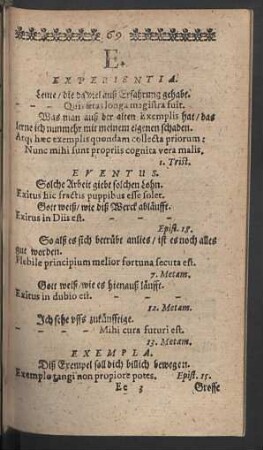 69
E.
EXPERIENTIA.
Leute / die da viel auß Erfahrung gehabt.
- - Quis ætas longa magistra fuit.
Was man auß der alten Exemplis hat / das
lerne ich nunmehr mit meinem eigenen schaden.
Atq; hæc exemplis quondam collecta priorum:
Nunc mihi sunt propriis cognita vera malis.
1. Trist.
EVENTUS.
Solche Arbeit giebt solchen Lohn.
Exitus hic fractis puppibus esse solet.
Gott weiß / wie diß Werck abläufft.
Exitus in Diis est. - - -
Epist. 15.
So alß es sich betrübt anlies / ist es noch alles
gut worden.
Flebile principium melior fortuna secuta est.
7. Metam.
Gott weiß / wie es hienauß läufft.
Exitus in dubio est. - - -
12. Metam.
Ich sehe uffs zukünfftige.
- - - Mihi cura futuri est.
13. Metam.
EXEMPLA.
Diß Exempel soll dich billich bewegen.
Exemplo tangi non propiore potes. Epist. 15.
Ee 3 Grosse